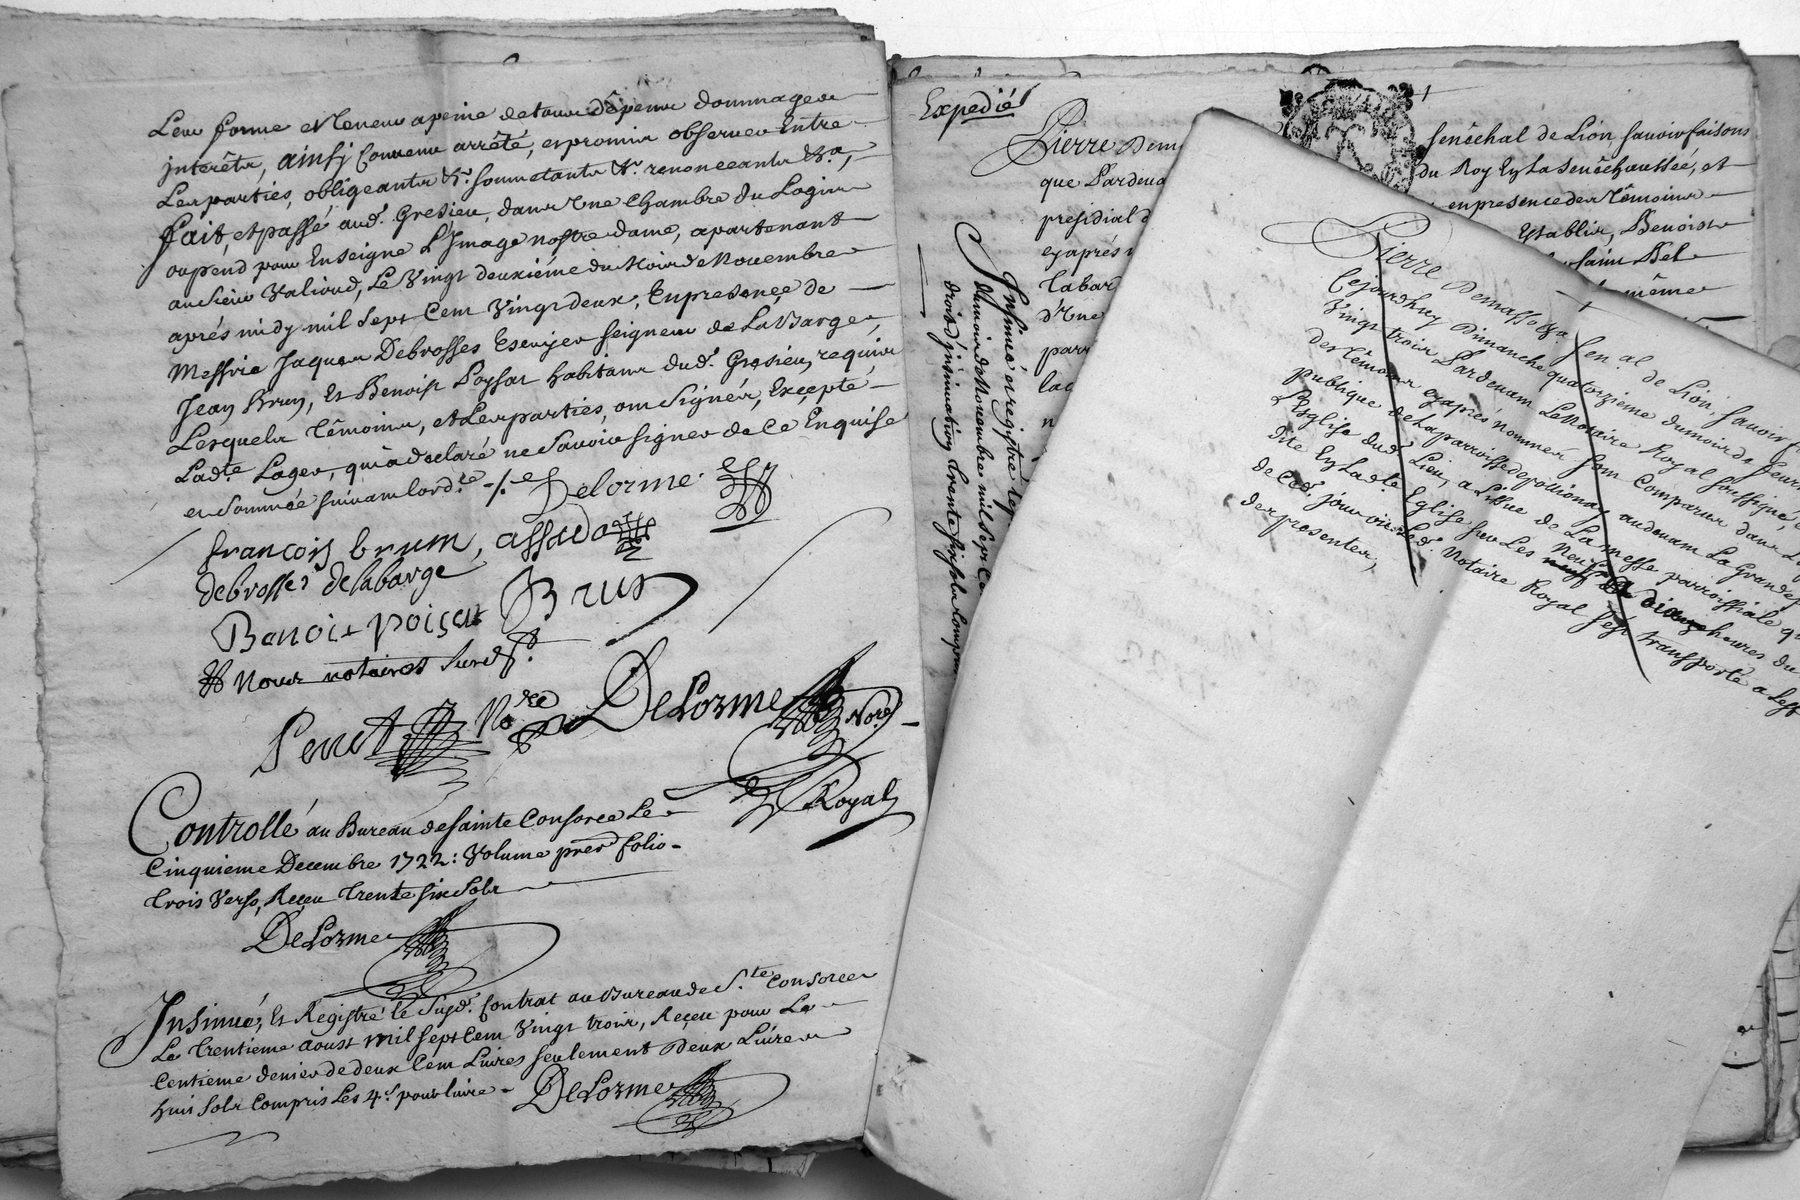 Leur forme et teneur a peine de tous dêpens dommages
interêts, ainsy convenu arrêté, et promis observer Entre
Les parties, obligeants &r. soumetants &r. renonceants &ra,
fait, et passé aud. Gresieu, dans Une chambre du Logis
ou pend pour Enseigne L'Image nostre dame, apartenant
au sieur Valioud, Le Vingt deuxiéme du Mois de Novembre
aprés midy mil sept Cent Vingt deux, En presence de
Messire Jaques Debrosses Escuyer seigneur de La Barge,
Jean Brun, Et Benoist Poysat habitans dud. Gresieu, requis
Lesquels témoins, et Les parties, ont signér, Excepté
Ladte. Lager, qui a declaré ne savoir signer de ce Enquise
et sommée suivant lordte
Delorme
françois brum, assado
debrosses delabarge
Benoit poiset Brun
Nous notaires susd.
Penet Nore DeLorme Nore
Royal
Controllé au Bureau de sainte Consorce Le
Cinquieme Decembre 1722: Volume prer folio
trois Verso, Reçeu trente six sols
DeLorme
Insinué, Et Registré le susd. Contrat au Bureau de Ste Consorce
Le trentieme aoust mil sept Cent Vingt trois, Reçeu pour Le
Centieme denier de deux Cent Livres seulement Deux Livres
huit sols compris Les 4s. pour livre DeLorme
Expedié
Pierre Dem
que Pardeva
presidial d
eyaprés
Labar
d'Une
parr
lad
Insinué et registré le
du mois de Novembre mil sept ce
droits d'insinuation trente six sols Compris
senêchal de Lion, savoir faisons
du Roy En La senêchaussée, et
en presence des Têmoins
Establis, Benoist
saint Bel
même
Pierre Demasso &a. sen.al. de Lion, savoir f
Cejourdhuy Dimanche quatorzieme du mois de feur
Vingt trois Pardevant Le Notaire Royal soussigné,
des Têmoins eyaprés nommés sont Comparus dans L
publique de la parroisse de pollionay audevant La Grande p
L'Eglise dud. Lieu, a L'issue de La messe parroissiale qu
dite En Ladte. Eglise sur Les Neuf a dix heures du
de Ced. jour Notaire Royal s'est transporté a L'eff
de presenter,